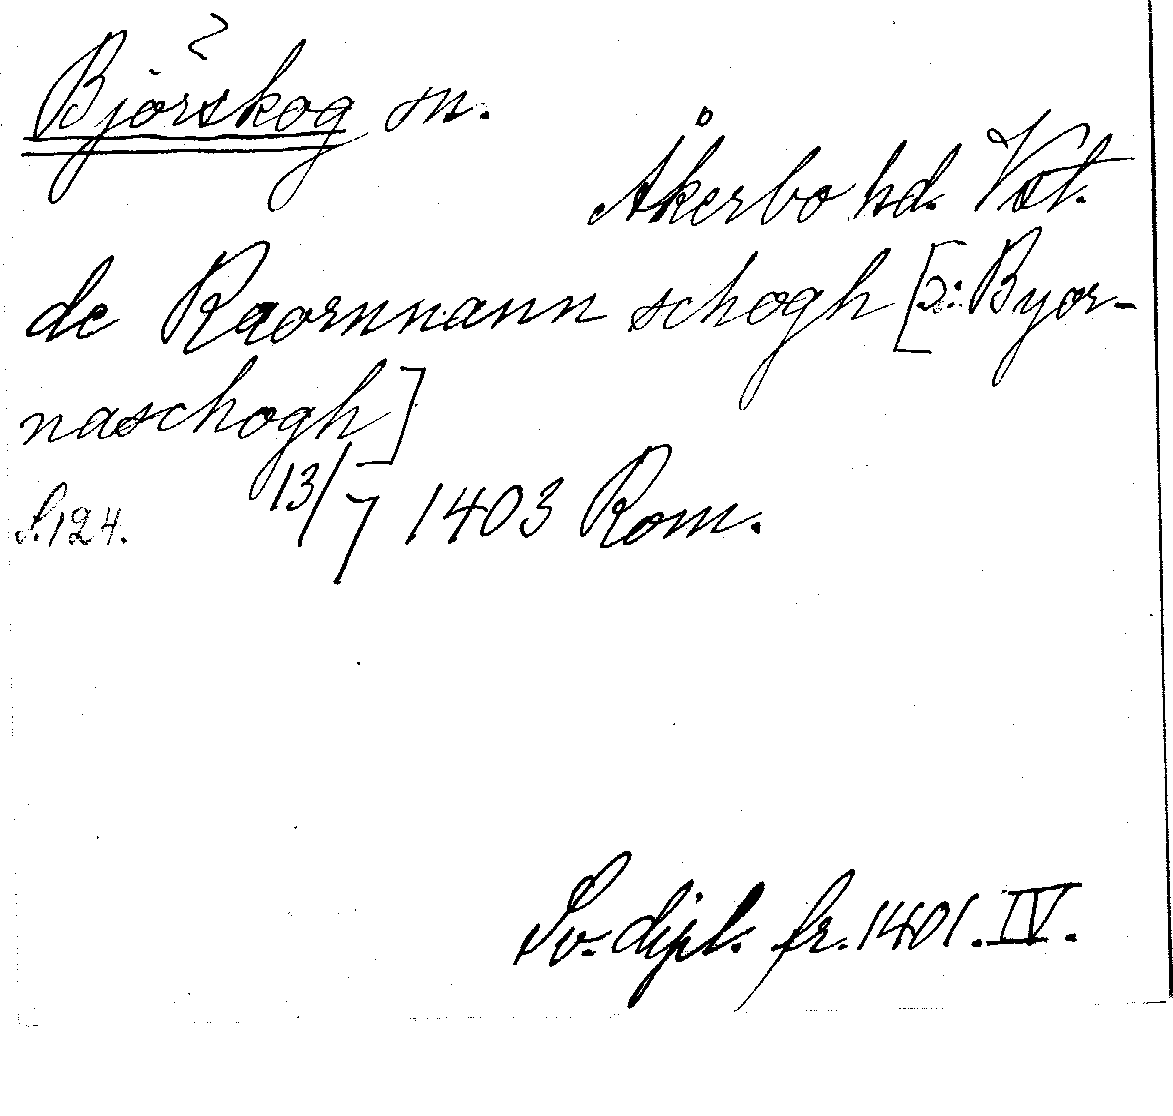 ?
Björskog sn.
Åkerbo hd. Vstl.
de Raornnann schogh [ɔ: Byor-
naschogh]
S. 124. 13/7 1403 Rom.
Sv. dipl. fr. 1401. IV.